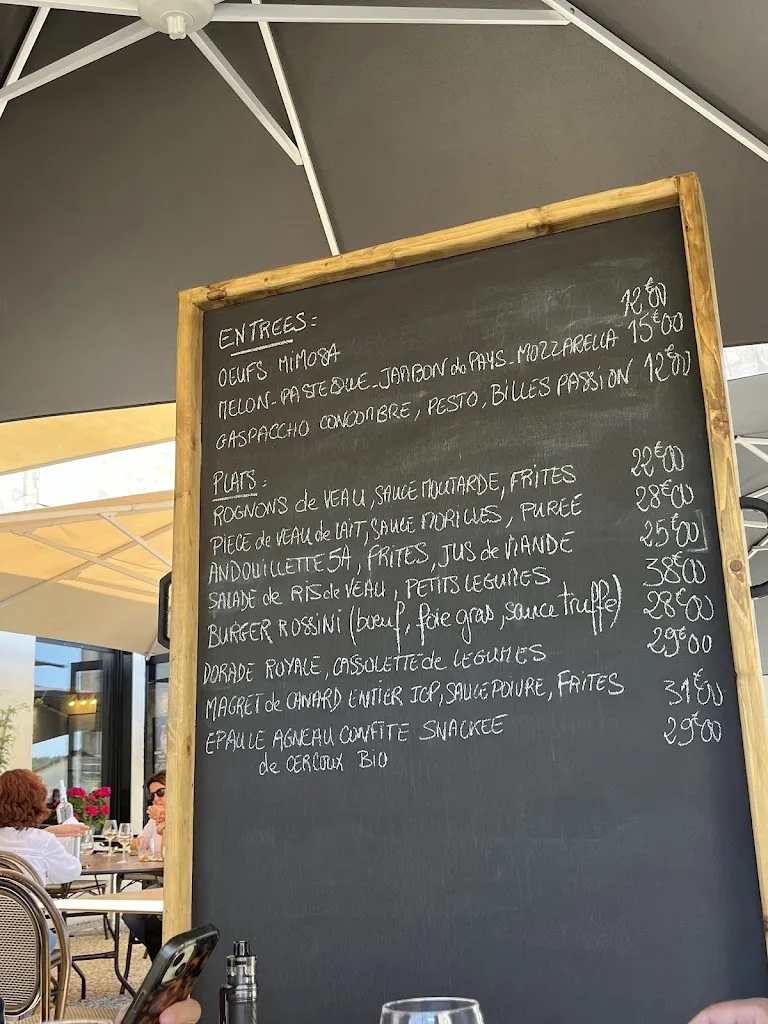 ENTREES:
OEUFS MIMOSA 12€00
MELON-PASTEQUE-JAMBON de PAYS-MOZZARELLA 15€00
GASPACCHO CONCOMBRE, PESTO, BILLES PASSION 12€00
PLATS:
ROGNONS de VEAU, SAUCE MOUTARDE, FRITES 22€00
PIECE de VEAU de LAIT, SAUCE MORILLES, PUREÉ 28€00
ANDOUILLETTE 5A, FRITES, JUS de VIANDE 25€00
SALADE de RIS de VEAU, PETITS LEGUMES 38€00
BURGER ROSSINI (boeuf, foie gras, sauce truffe) 28€00
DORADE ROYALE, CASSOLETTE de LEGUMES 29€00
MAGRET de CANARD ENTIER IGP, SAUCE POIVRE, FRITES 31€00
EPAULE AGNEAU CONFITE SNACKEE 29€00
de CERCOUX BIO